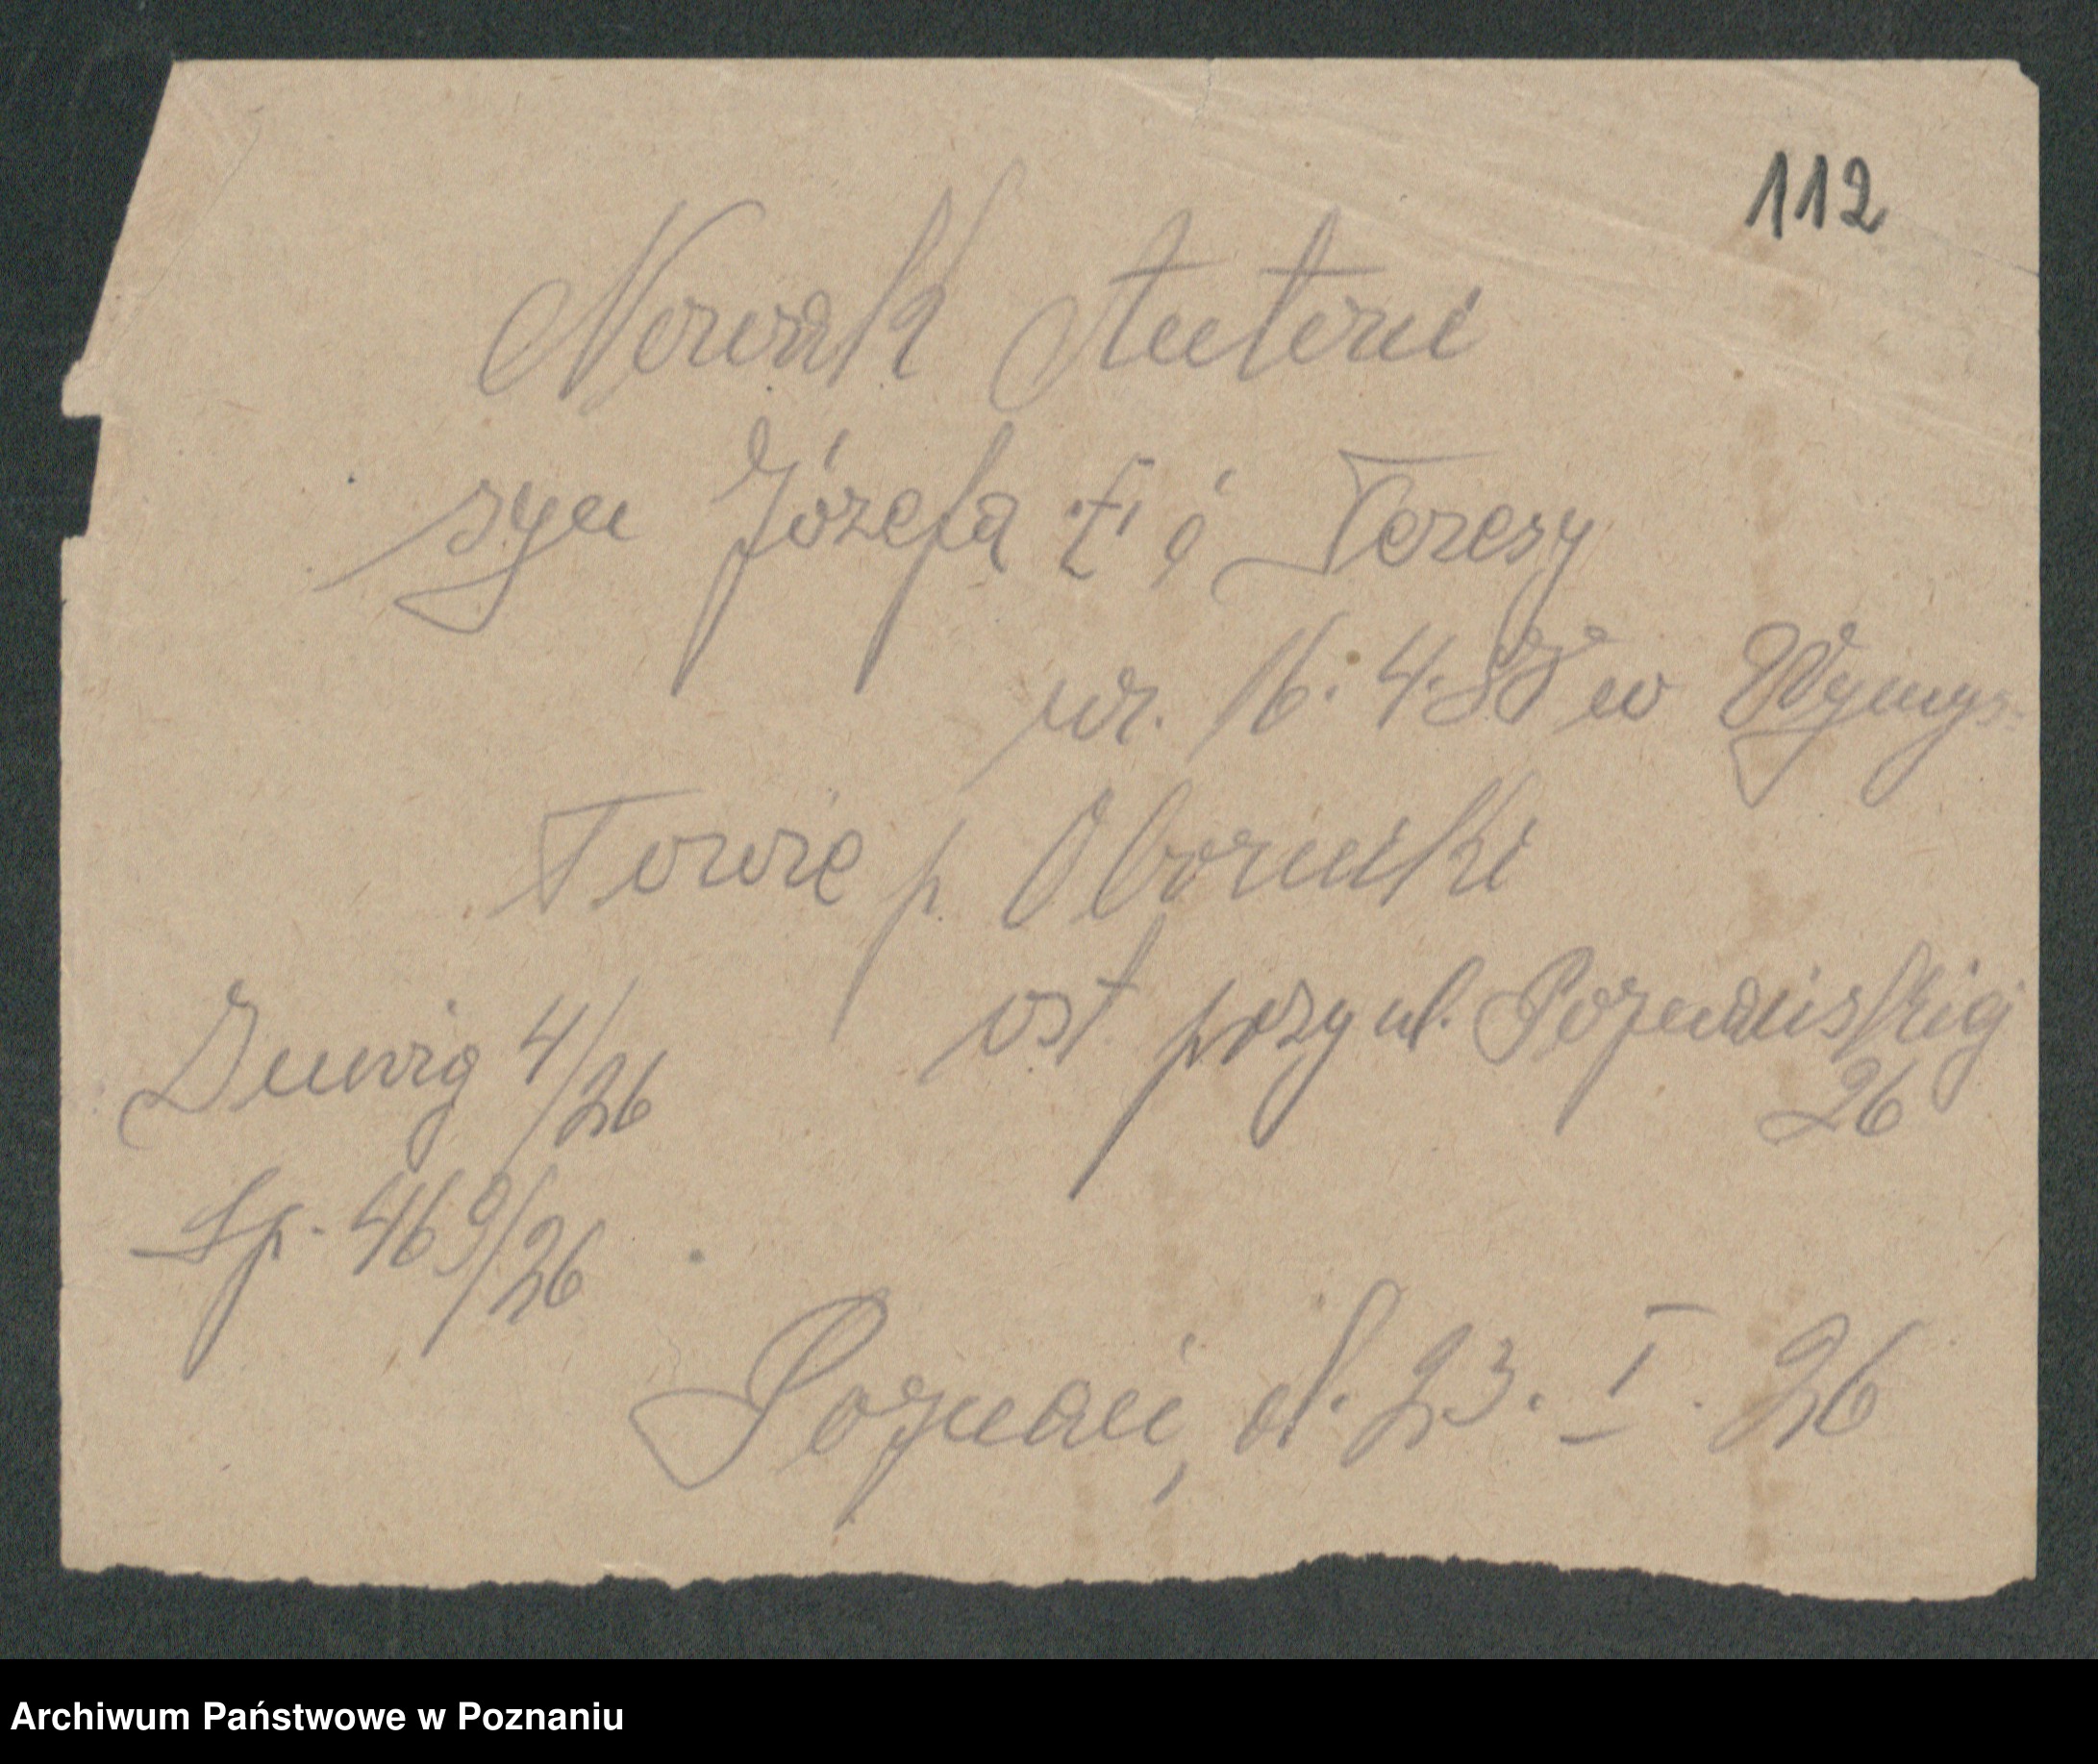 112
Nowak Antoni
syn Józefa i Teresy
ur. 16. 4. w Wymys
Towie p. Oborniki
ost przy ul. Poznańskiej
26
Dnwig 4/26
Lp. 469/26
Poznań, d. 23. I. 26
Archiwum Państwowe w Poznaniu